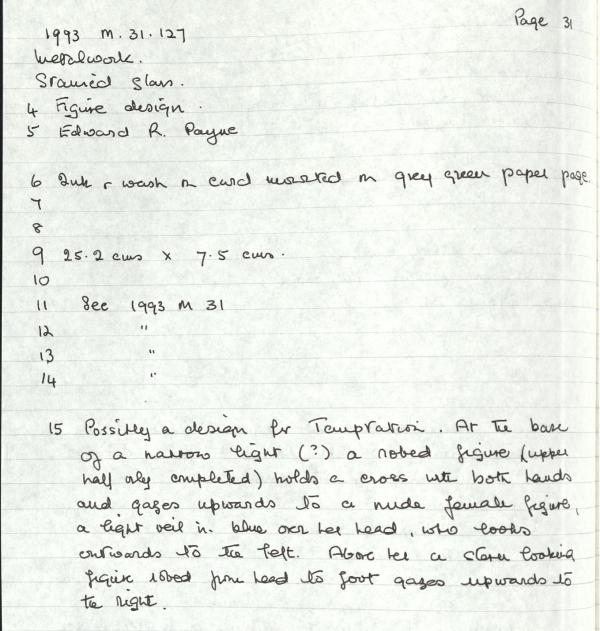 Page 31
1993 M.31.127
Metalwork.
Stained glass.
4 Figure design.
5 Edward R. Payne
6 Ink & wash on card mounted on grey green paper page.
7
8
9 25.2 cms x 7.5 cms.
10
11 See 1993 M 31
12 "
13 "
14 "
15 Possibly a design for Temptation. At the base
of a narrow light (?) a robed figure (upper
half only completed) holds a cross with both hands
and gazes upwards to a nude female figure,
a light veil in blue over her head, who looks
outwards to the left. Above her a stern looking
figure robed from head to foot gazes upwards to
the right.